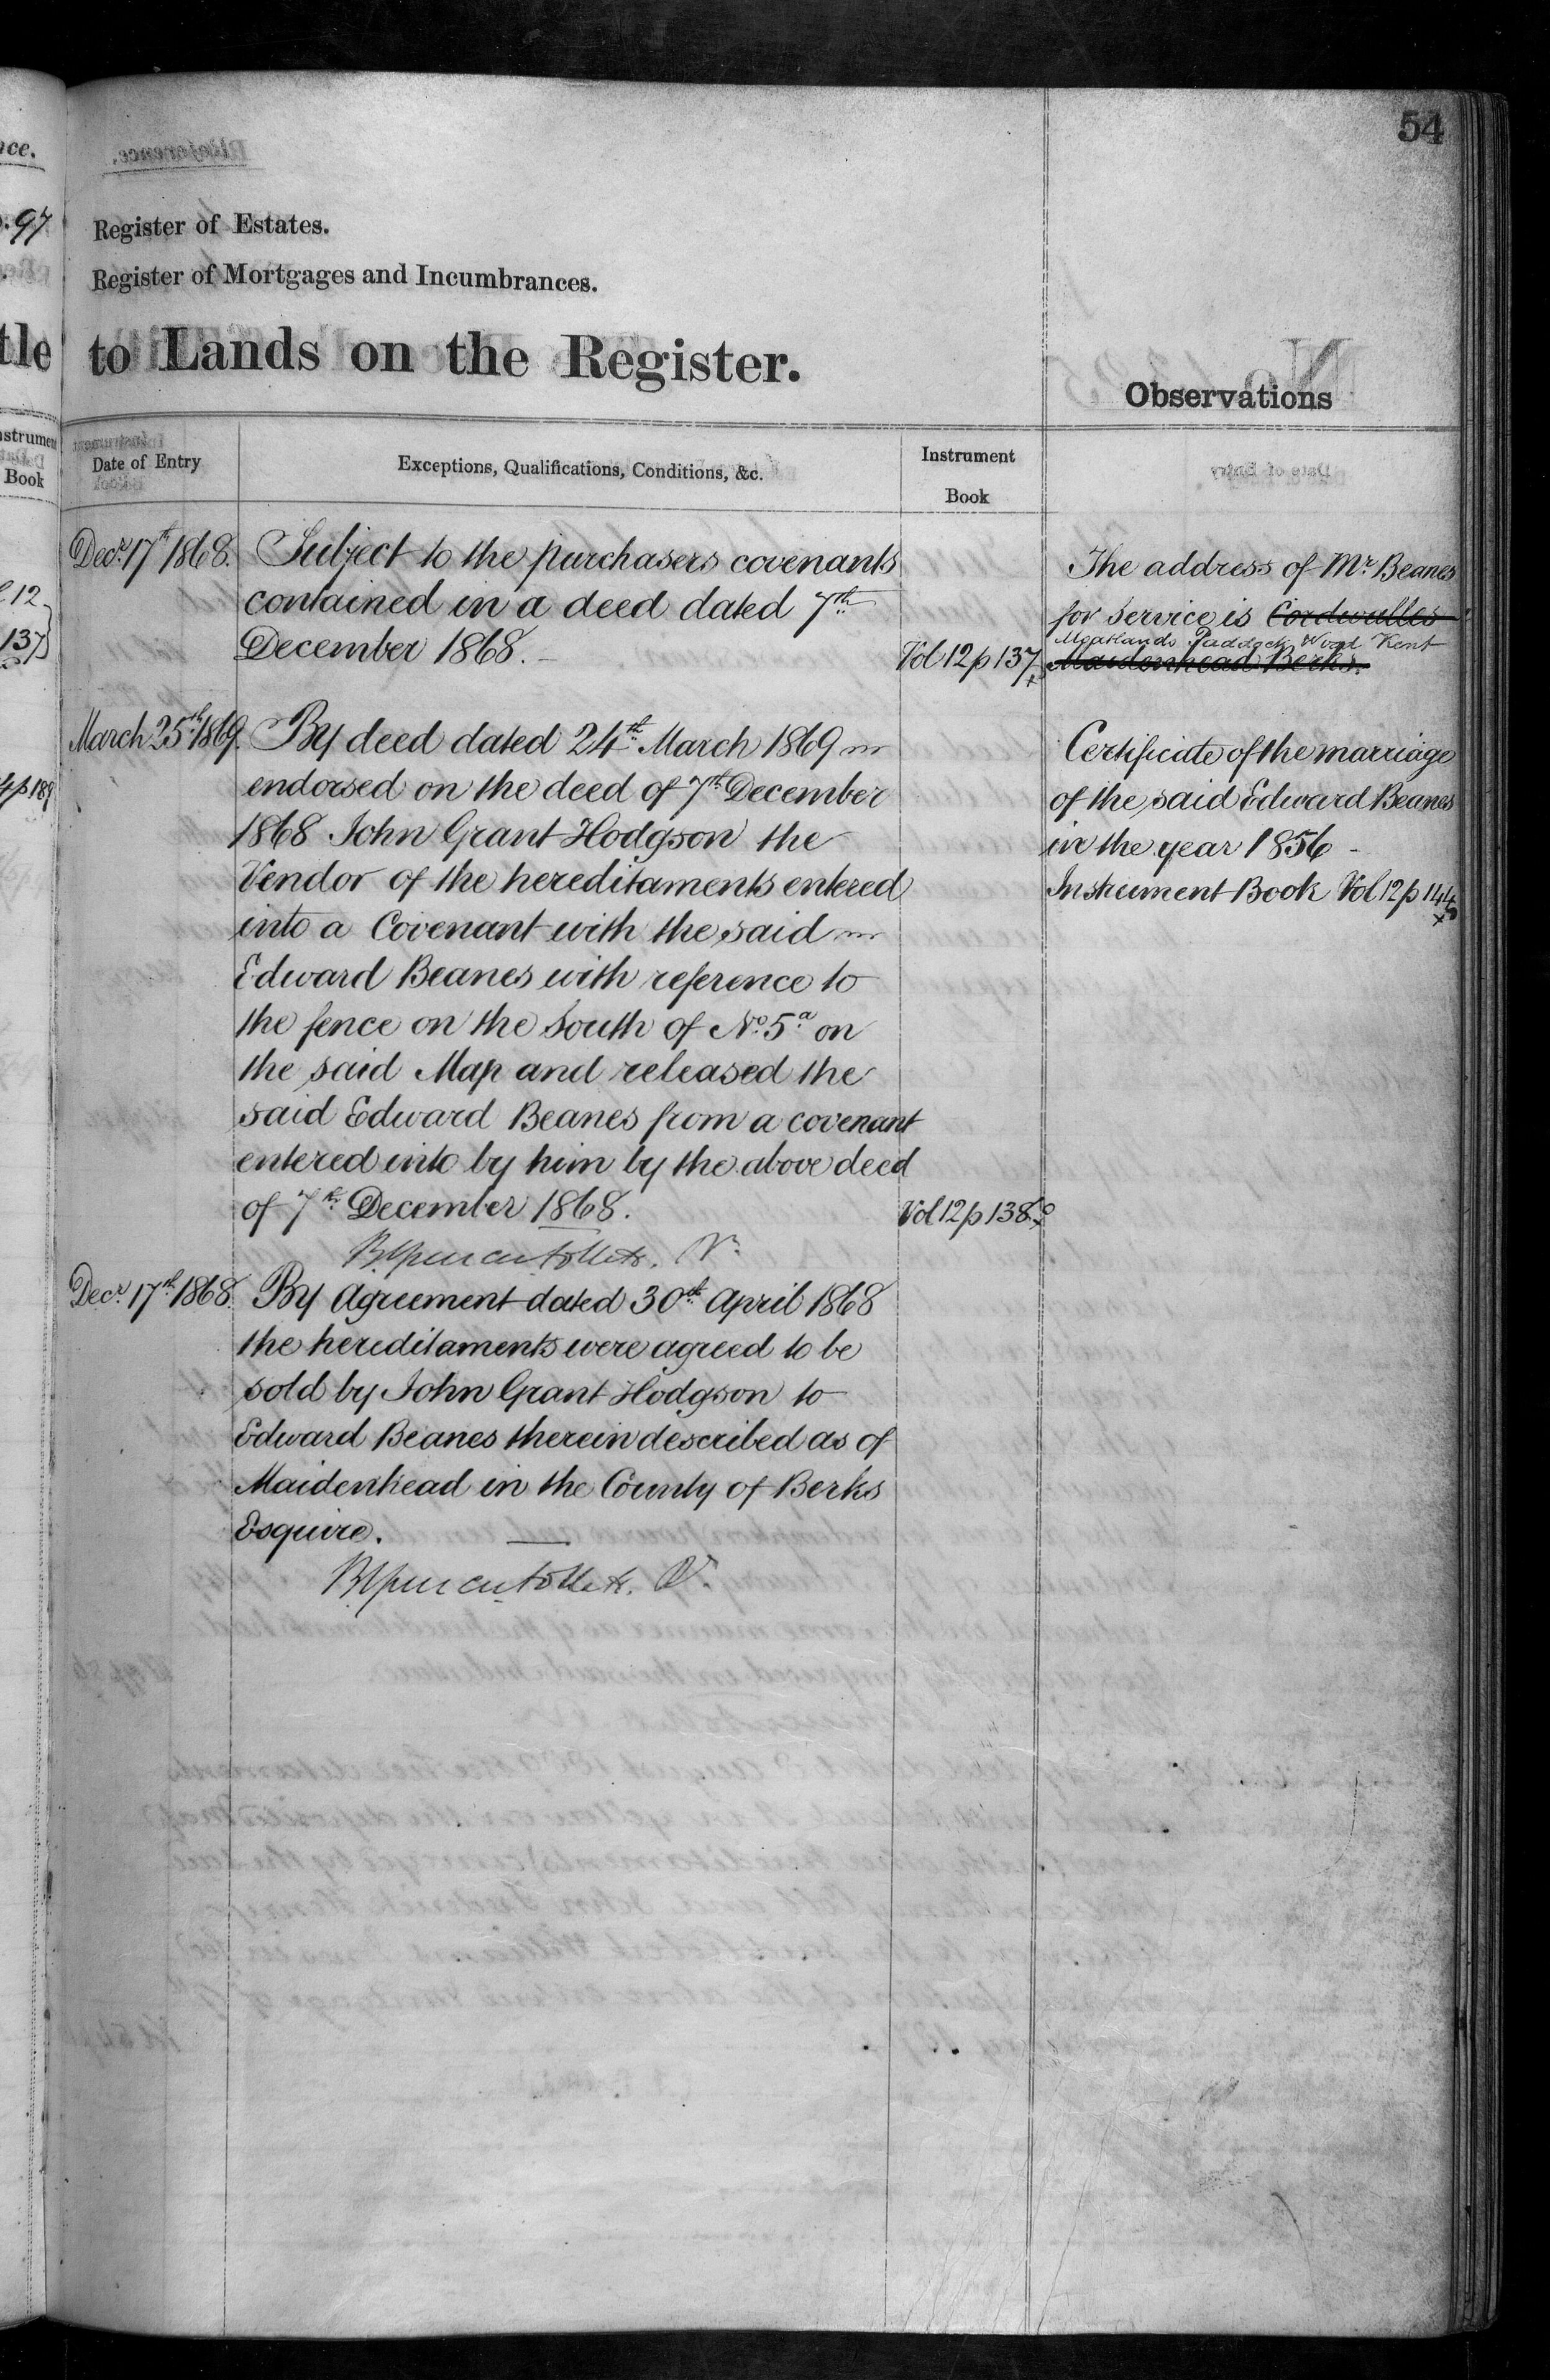 54
Register of Estates.
Register of Mortgages and Incumbrances.
to Lands on the Register.
Observations
Date of Entry
Exceptions, Qualifications, Conditions, &c.
Instrument
Book
Decr. 17th 1868.
Subject to the purchasers covenants
contained in a deed dated 7th
December 1868.
Vol 12 p 137
The address of Mr. Beanes
for service is Cordwalles
Moatlands Paddock Wood Kent
Maidenhead Berks.
March 25th 1869.
By deed dated 24th March 1869
endorsed on the deed of 7th December
1868 John Grant Hodgson the
Vendor of the hereditaments entered
into a Covenant with the said
Edward Beanes with reference to
the fence on the South of No. 5a on
the said Map and released the
said Edward Beanes from a covenant
entered into by him by the above deed
of 7th December 1868.
Vol 12 p 138
Certificate of the marriage
of the said Edward Beanes
in the year 1856 -
Instrument Book Vol 12 p 144
Decr. 17th 1868.
By Agreement dated 30th April 1868
the hereditaments were agreed to be
sold by John Grant Hodgson to
Edward Beanes therein described as of
Maidenhead in the County of Berks
Esquire.